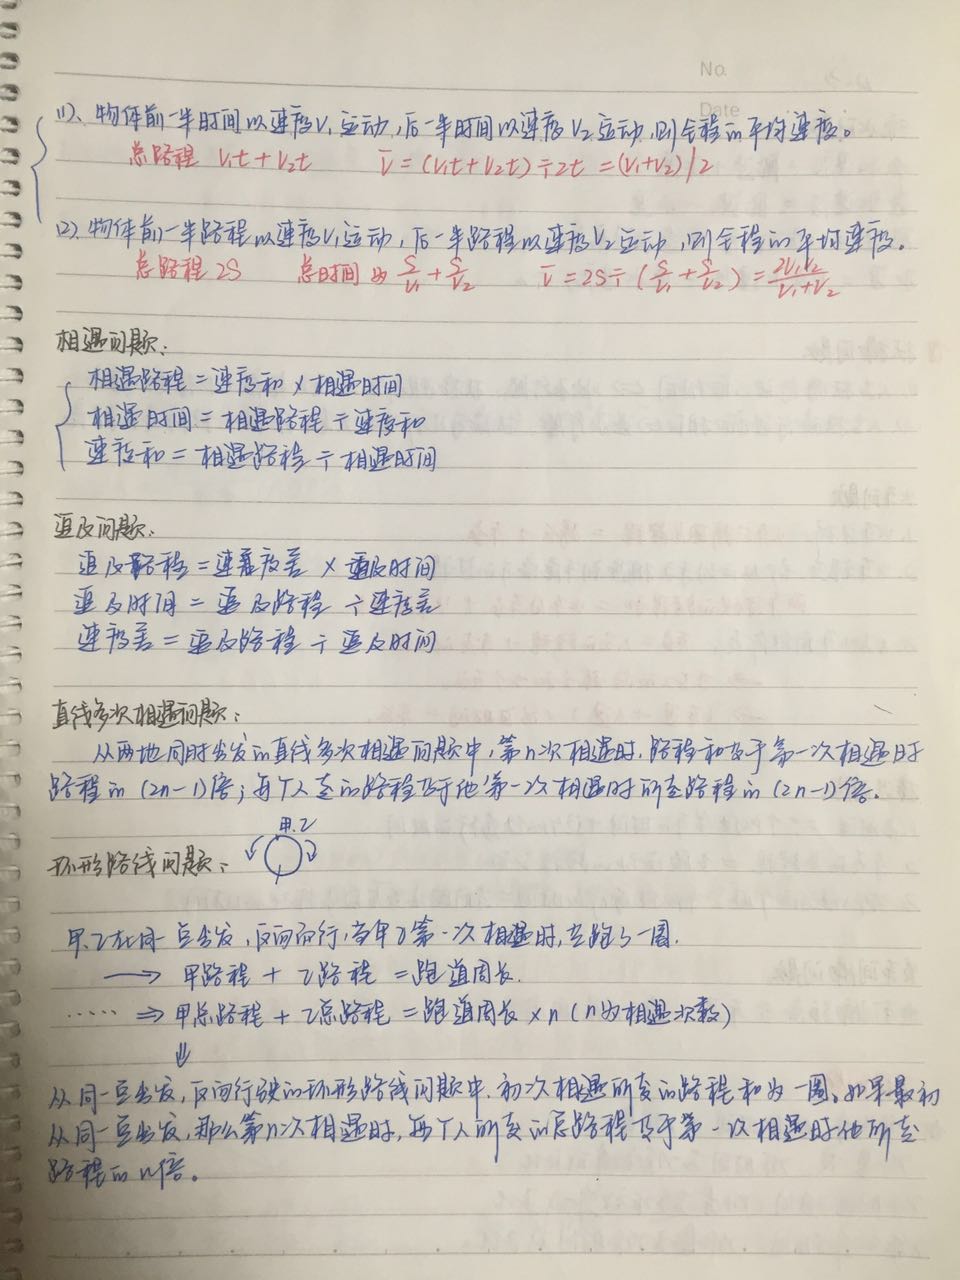 No.
Date
(1)、物体前一半时间以速度V₁运动,后一半时间以速度V₂运动,则全程的平均速度。
总路程 V₁t+V₂t V̄=(V₁t+V₂t)÷2t=(V₁+V₂)/2
(2)、物体前一半路程以速度V₁运动,后一半路程以速度V₂运动,则全程的平均速度。
总路程2S 总时间为 S/V₁+S/V₂ V̄=2S÷(S/V₁+S/V₂)=2V₁V₂/V₁+V₂
相遇问题:
相遇路程=速度和×相遇时间
相遇时间=相遇路程÷速度和
速度和=相遇路程÷相遇时间
追及问题:
追及路程=速度差×追及时间
追及时间=追及路程÷速度差
速度差=追及路程÷追及时间
直线多次相遇问题:
从两地同时出发的直线多次相遇问题中,第n次相遇时,路程和等于第一次相遇时
路程的(2n-1)倍;每个人走的路程等于他第一次相遇时所走路程的(2n-1)倍.
甲.乙
环形路线问题:
甲.乙在同一点出发,反向而行,当甲乙第一次相遇时,共跑了一圈.
→ 甲路程+乙路程=跑道周长.
…… ⇒ 甲总路程+乙总路程=跑道周长×n(n为相遇次数)
⇓
从同一点出发,反向行驶的环形路线问题中.初次相遇所走的路程和为一圈。如果最初
从同一点出发,那么第n次相遇时,每个人所走的总路程等于第一次相遇时他所走
路程的n倍。